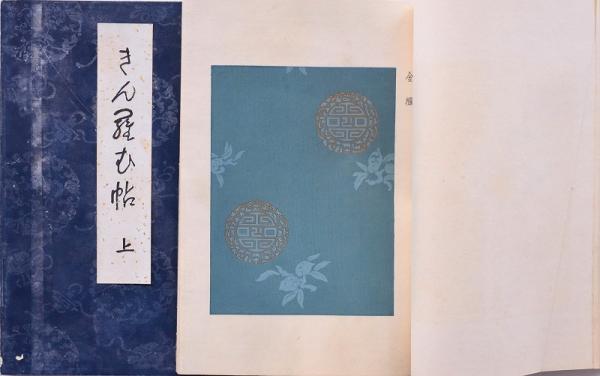 きん羅む帖 上
金襴